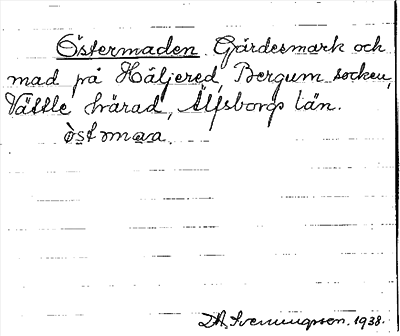 Östermaden. Gärdesmark och
mad på Häljered, Bergum socken,
Vättle härad, Älfsborgs län.
òstmaa.
Sveningson. 1938.